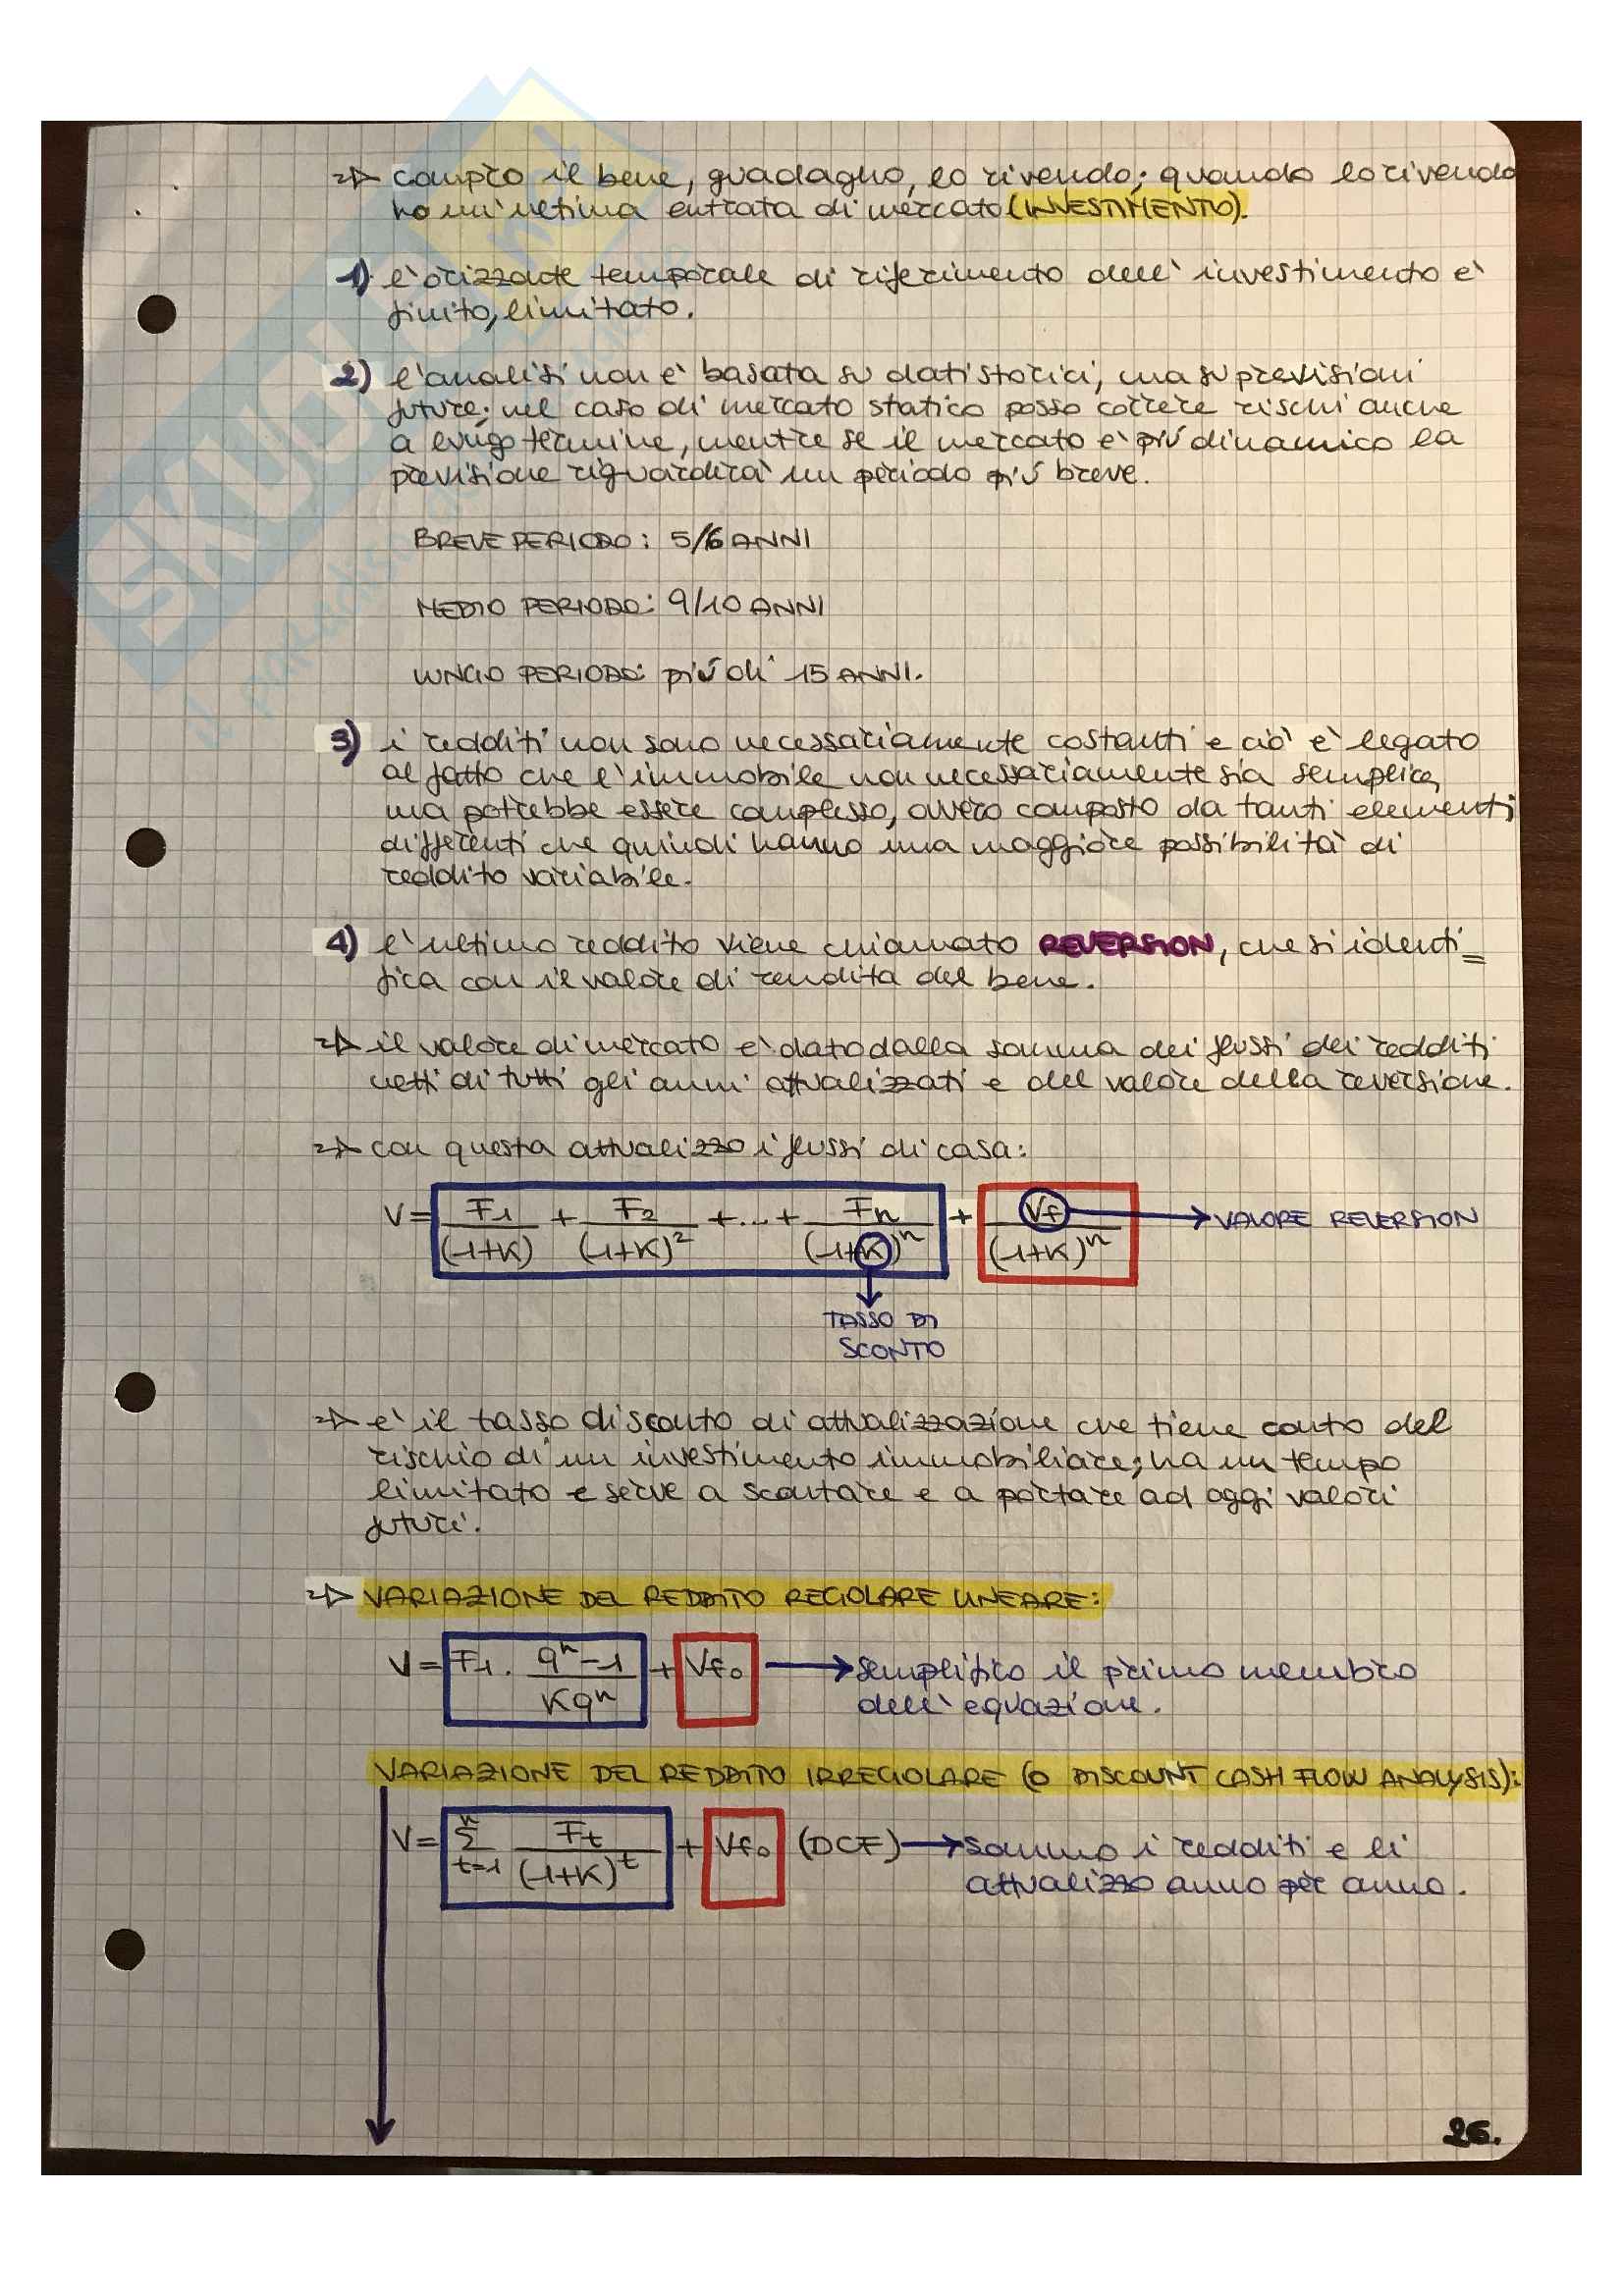 => compro il bene, guadagno, lo rivendo; quando lo rivendo
ho un'ultima entrata di mercato (INVESTIMENTO).
1) l'orizzonte temporale di riferimento dell'investimento è
finito, limitato.
2) l'analisi non è basata su dati storici, ma su previsioni
future; nel caso di mercato statico posso correre rischi anche
a lungo termine, mentre se il mercato è più dinamico la
previsione riguarderà un periodo più breve.
BREVE PERIODO: 5/6 ANNI
MEDIO PERIODO: 9/10 ANNI
LUNGO PERIODO: più di 15 ANNI.
3) i redditi non sono necessariamente costanti e ciò è legato
al fatto che l'immobile non necessariamente sia semplice,
ma potrebbe essere complesso, ovvero composto da tanti elementi
differenti che quindi hanno una maggiore possibilità di
reddito variabile.
4) l'ultimo reddito viene chiamato REVERSION, che si identi=
fica con il valore di rendita del bene.
=> il valore di mercato è dato dalla somma dei flussi dei redditi
netti di tutti gli anni attualizzati e del valore della reversione.
=> con questa attualizzo i flussi di casa:
V = F1/(1+K) + F2/(1+K)² + ... + Fn/(1+K)ⁿ + Vf/(1+K)ⁿ → VALORE REVERSION
TASSO DI
SCONTO
=> è il tasso di sconto di attualizzazione che tiene conto del
rischio di un investimento immobiliare; ha un tempo
limitato e serve a scontare e a portare ad oggi valori
futuri.
=> VARIAZIONE DEL REDDITO REGOLARE LINEARE:
V = F1 · (qⁿ-1)/(Kqⁿ) + Vf₀ → semplifico il primo membro
dell'equazione.
VARIAZIONE DEL REDDITO IRREGOLARE (O DISCOUNT CASH FLOW ANALYSIS):
V = Σ(t=1, n) Ft/(1+K)ᵗ + Vf₀ (DCF) → sommo i redditi e li
attualizzo anno per anno.
26.